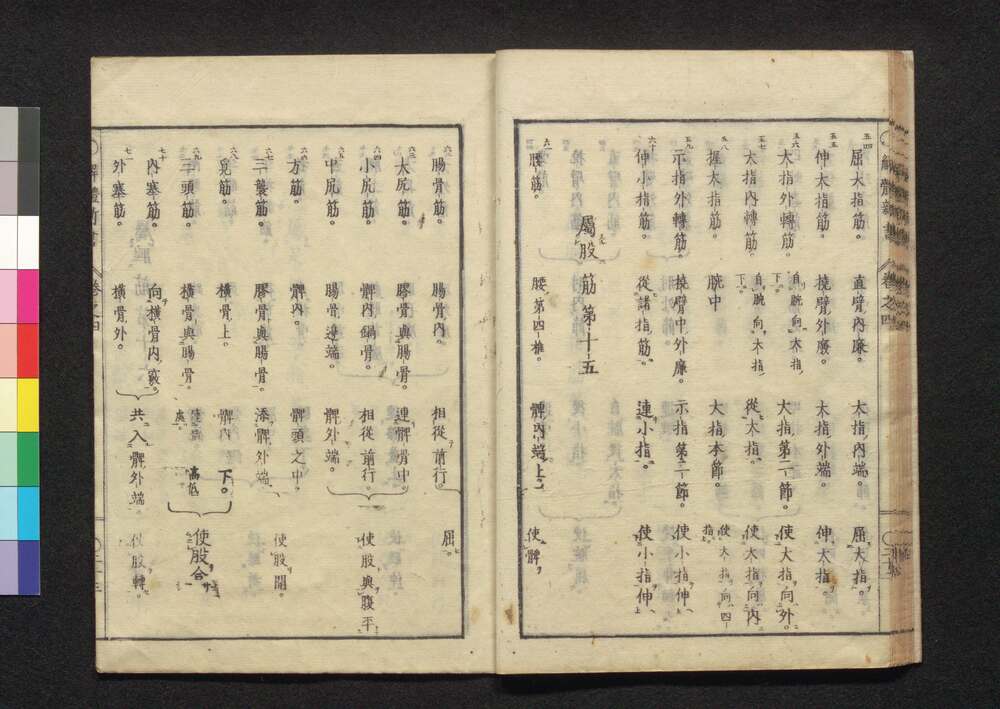 五四 屈大指筋。 直臂內廉。 大指內端。 屈大指。
五五 伸大指筋。 撓臂外廉。 大指外端。 伸大指。
五六 大指外轉筋。 自腕向大指下。 大指第二節。 使大指向外。
五七 大指內轉筋。 自腕向大指下。 從大指。 使大指向內
五八 握大指筋。 腕中 大指本節。 使大指向四指。
五九 示指外轉筋。 撓臂中外廉。 示指第二節。 使小指伸
六十 伸小指筋。 從諸指筋。 連小指。 使小指伸。
屬股筋第十五
六一 腰筋。 腰第四椎。 髀內端上。 使髀
解體新書 卷之四
六二 腸骨筋。 腸骨內。 相從前行。 屈。
六三 大尻筋。 膠骨與腸骨。 連髀骨中。
六四 小尻筋。 髀內鍋骨。 相從前行。 使股與腹平
六五 中尻筋。 腸骨邊端。 髀外端。
六六 方筋。 髀內。 髀頭之中。
六七 三襲筋。 膠骨與腸骨。 添髀外端。 使股開。
六八 覓筋。 橫骨上。 髀內下。
六九 三頭筋。 橫骨與腸骨。 高低 使股合。
七十 內塞筋。 向橫骨內竅。
七一 外塞筋。 橫骨外。 共入髀外端。 使股轉。
解體新書 卷之四